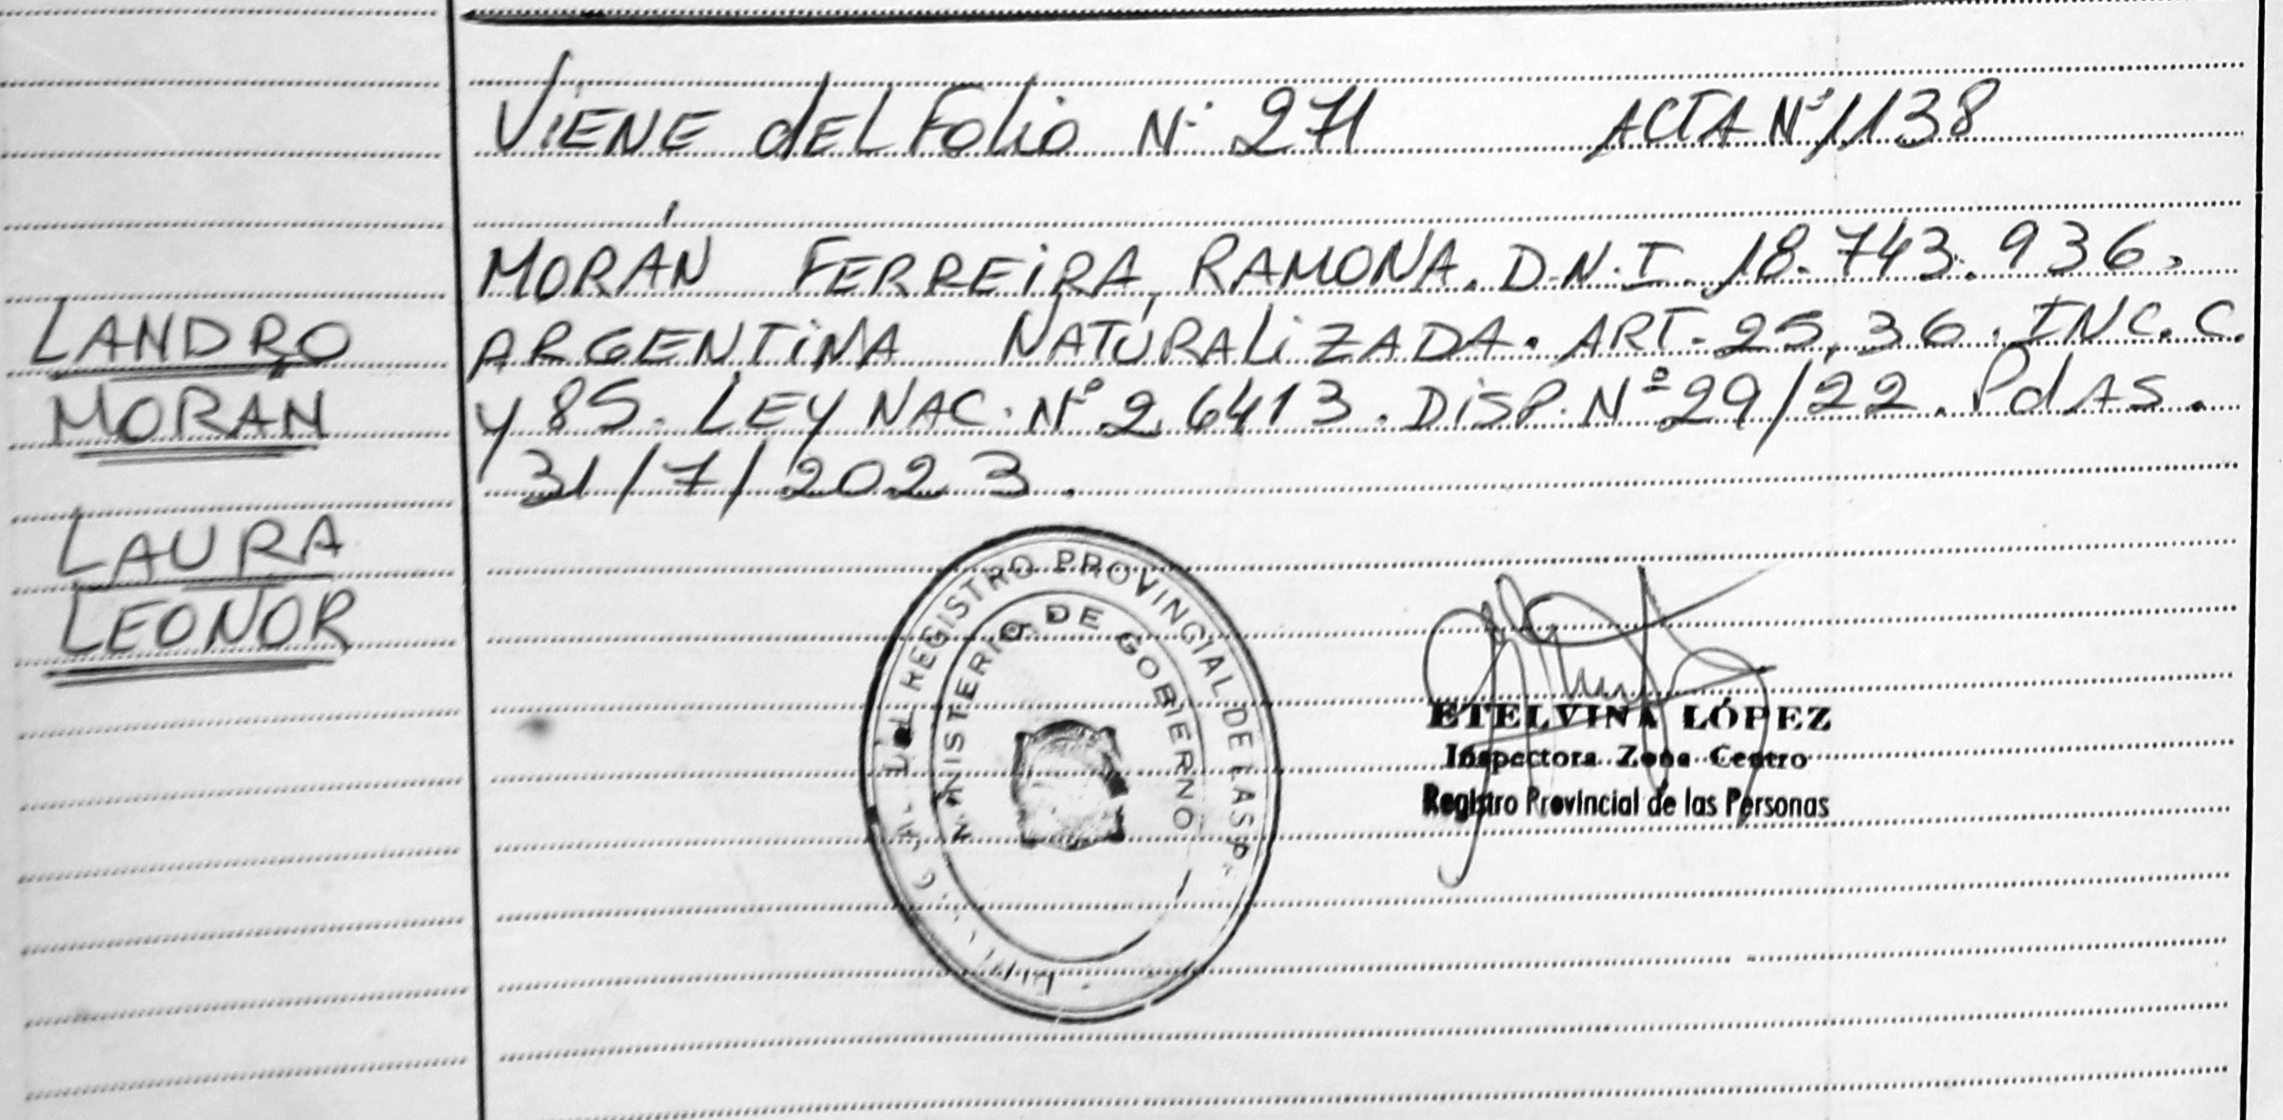 VIENE dEL Folio N° 271 ACTA N° 1138
MORÁN FERREIRA, RAMONA. D.N.I. 18.743.936,
ARGENTINA NATURALIZADA. ART. 25, 36. INC. C.
Y 85. LEY NAC. N° 26413. DISP. Nº 29/22. PdAS.
31/7/2023.
LANDRO
MORÁN
LAURA
LEONOR
REGISTRO PROVINCIAL DE LAS P
MINISTERIO DE GOBIERNO
ETELVINA LÓPEZ
Inspectora Zona Centro
Registro Provincial de las Personas